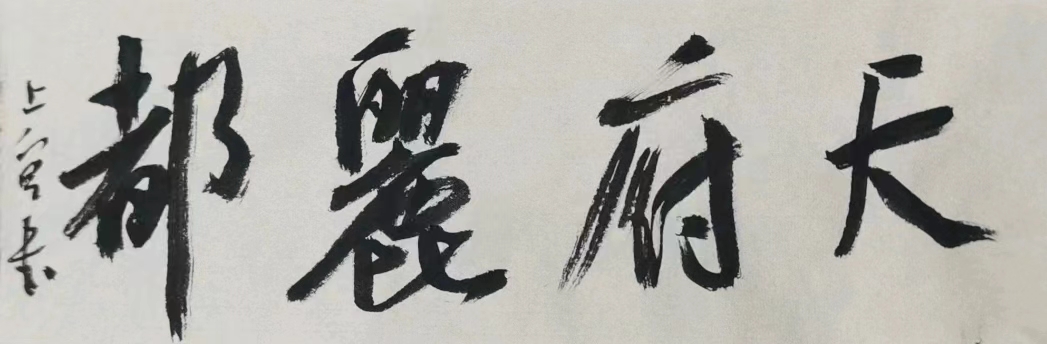 天府麗都
上官书